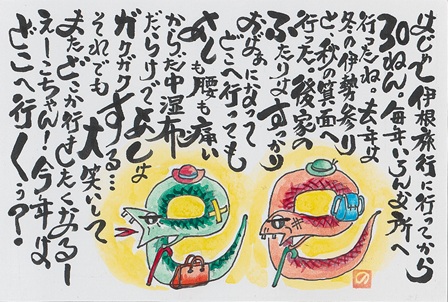 はじめて伊根旅行に行ってから
30ねん。毎年いろんな所へ
行ったね。去年は
冬の伊勢参り
と、秋の箕面へ
行った。後家の
ふたりはすっかり
おばあになって
どこへ行っても
あしも腰も痛い
からだ中湿布
だらけであしは
ガクガクする…
それでも大笑いして
またどこか行きたくなるー
えーこちゃん!今年は
どこへ行くぅ?
の